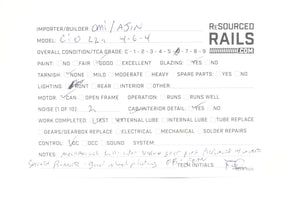 ReSOURCED
RAILS
.COM
IMPORTER/BUILDER: OMI / AJIN
MODEL: C&O L2a 4-6-4
OVERALL CONDITION/TCA GRADE: C-1-2-3-4-5-6-7-8-9
PAINT: NO FAIR GOOD EXCELLENT GLAZING: YES NO
TARNISH: NONE MILD MODERATE HEAVY SPARE PARTS: YES NO
LIGHTING: FRONT REAR INTERIOR OTHER
MOTOR: CAN OPEN FRAME OPERATION: RUNS RUNS WELL
NOISE (1 OF 10): 2 CAB/INTERIOR DETAIL: YES NO
WORK COMPLETED: TEST EXTERNAL LUBE INTERNAL LUBE TUBE REPLACE
GEARS/GEARBOX REPLACE ELECTRICAL MECHANICAL SOLDER REPAIRS
CONTROL: DC DCC SOUND SYSTEM
NOTES:
TECH INITIALS